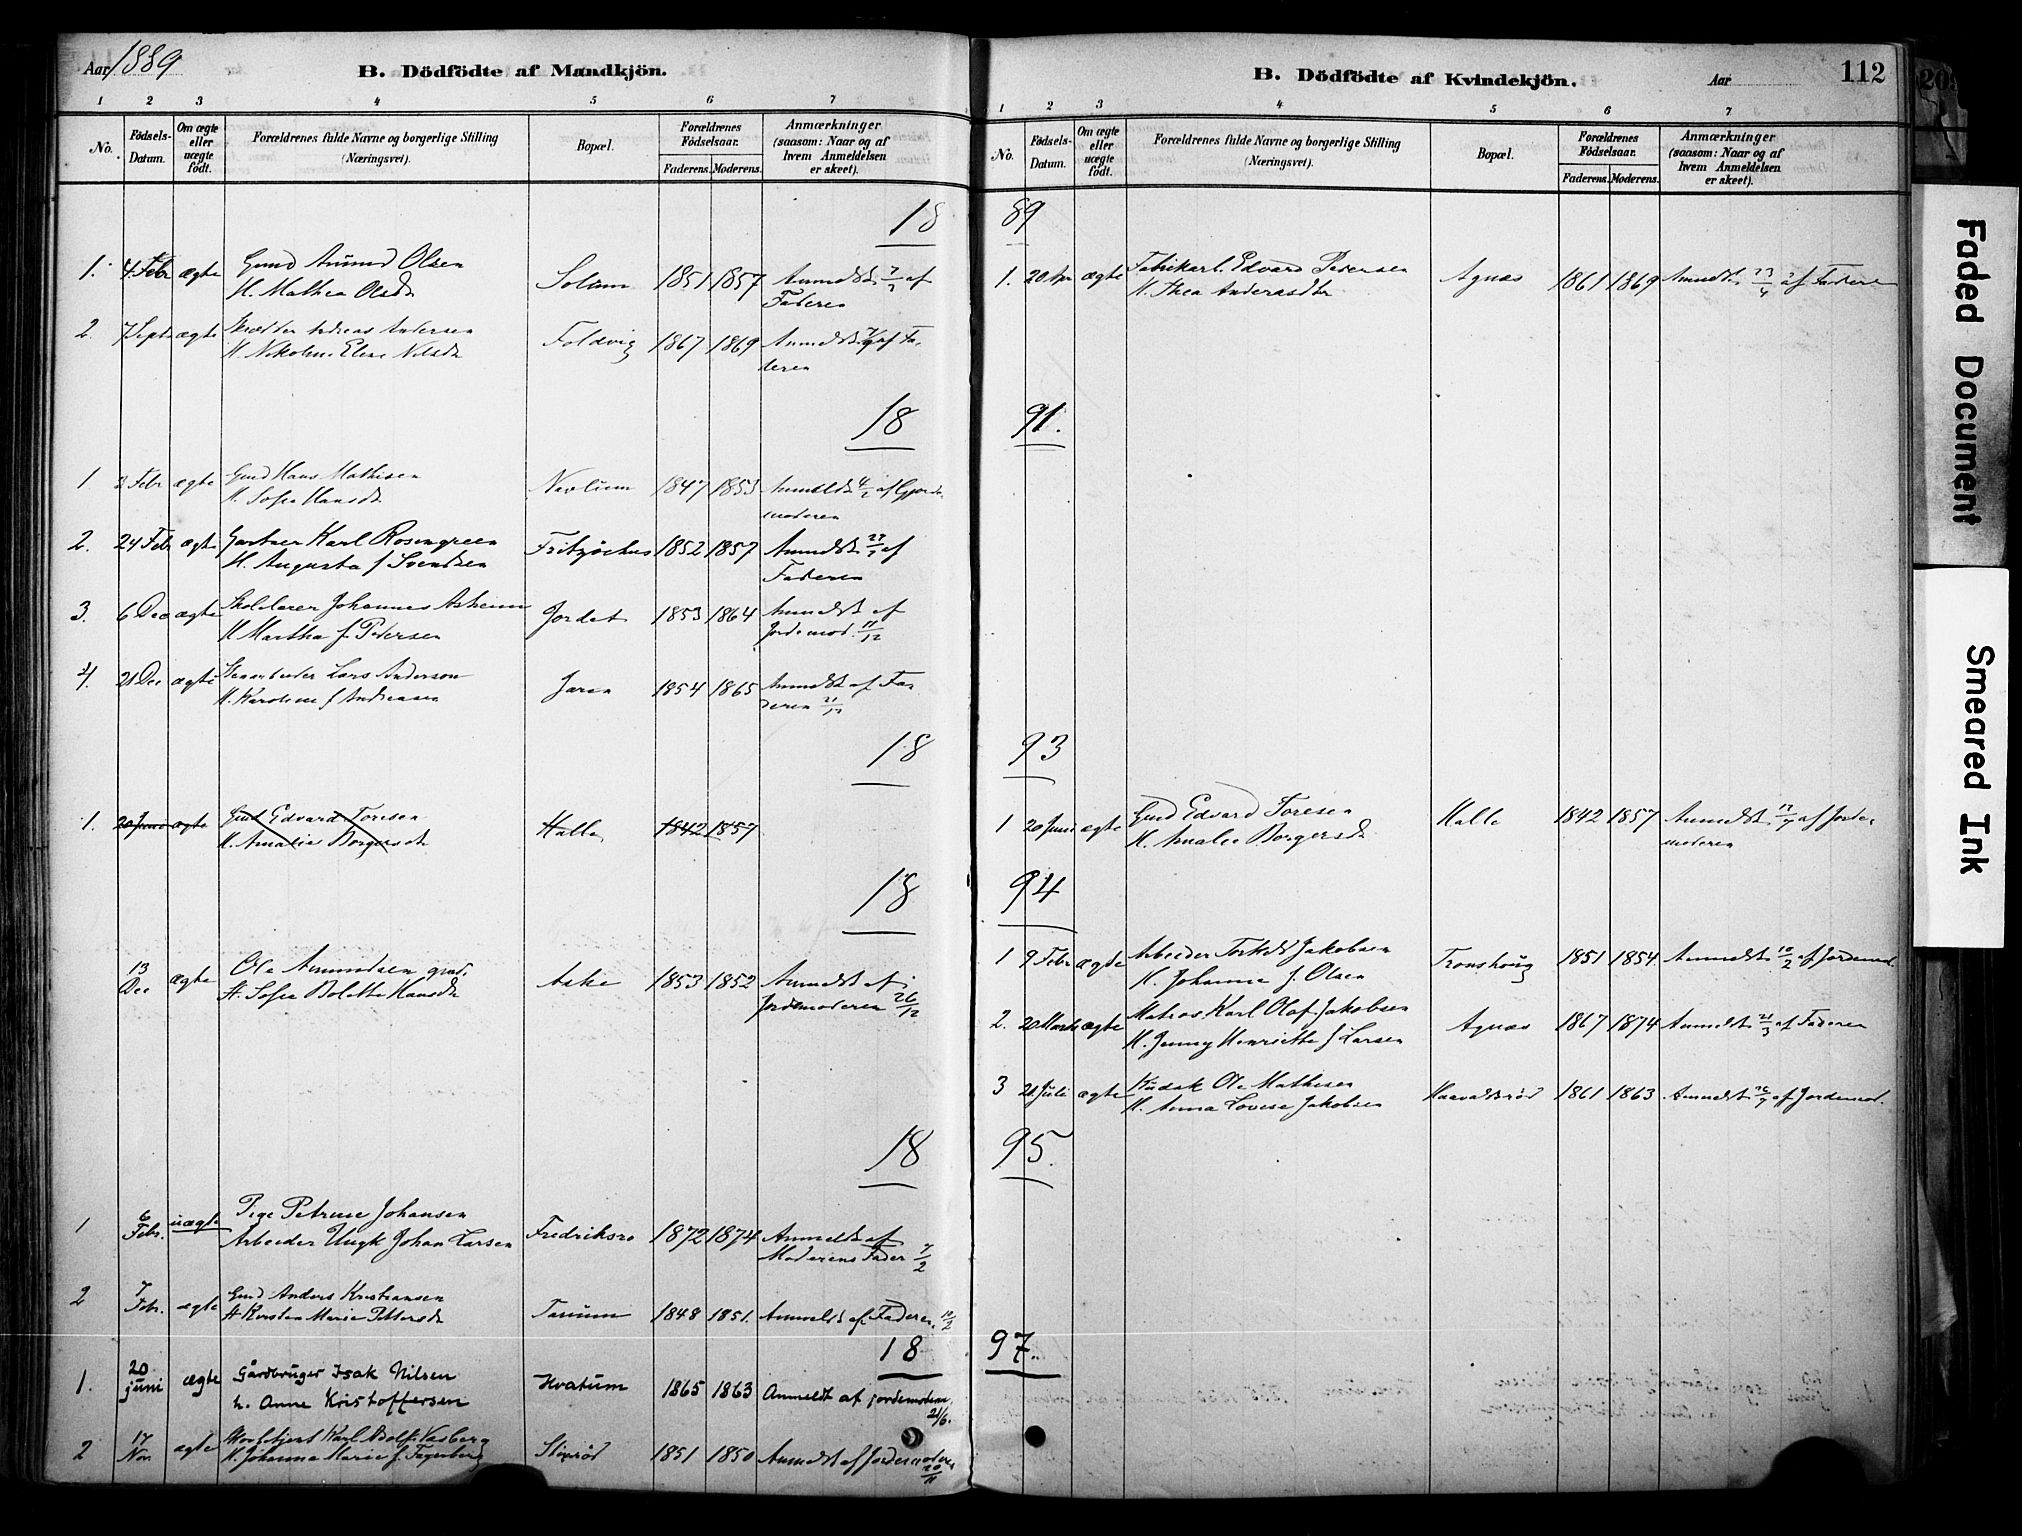 Aar 1889
B. Dödfödte af Mandkjön.
1 2 3 4 5 6 7
No.
Födsels-Datum.
Om ægte eller uægte födt.
Forældrenes fulde Navne og borgerlige Stilling (Næringsvei).
Bopæl.
Forældrenes Födselsaar.
Faderens. Moderens.
Anmærkninger (saasom: Naar og af hvem Anmeldelsen er skeet).
18
1. 4 Febr ægte Gmd Amund Olsen Solum 1851 1857 Anmeldt af
H. Mathea Olsdr Faderen
2. 7 Sept ægte Andreas Andersen Foldvig 1867 1869 Anmeldt af Fa-
H. Nikoline Elene Nilsdr deren
18
1 2 Febr ægte Gmd Hans Mathisen Navlum 1847 1853 Anmeldt 4/2 af Gjorde-
H. Sofie Hansdr moderen
2. 24 Febr ægte Gartner Karl Rosengreen Fritzøehus 1852 1857 Anmeldt af
H. Augusta f Svendsen Faderen
3. 6 Dec ægte Skolelærer Johannes Askeim Jordet 1853 1864 Anmeldt af
H Martha f. Pedersen Jordemod. 11/12
4. 21 Dec ægte Stenarbeider Lars Anderson Jaren 1854 1865 Anmeldt af Fa
H. Karoline f Andreasen deren 21/12
18
1. 20 Juni ægte Gmd Edvard Toresen Halle 1842 1857
H. Amalie Borgersdr
18
13 Dec ægte Ole Amundsen gmd. Aske 1853 1852 Anmeldt af
H. Sofie Bolette Hansdr Jordemoderen 26/12
18
1 6 Febr. uægte Pige Petrine Johansen Fredriksro 1872 1874 Anmeldt af
Arbeider Ungk Johan Larsen Moderens Fader 7/2
2 7 Febr. ægte Gmd Anders Kristiansen Tanum 1848 1851. Anmeldt af Faderen 10/2
H Karsten Marie Pettersdr
18
1. 20 juni ægte Gårdbruger Isak Nilsen Hvatum 1865 1863 Anmeldt af jordemoderen
h. Anne Kristoffersen 21/6.
2 17 Nov. ægte Karl Adolf Vasberg 1851 1850 Anmeldt af Jordemoderen
H. Johanna Marie f. Fagerberg 20/11
B. Dödfödte af Kvindekjön.
Aar
112
1 2 3 4 5 6 7
No.
Födsels-Datum.
Om ægte eller uægte födt.
Forældrenes fulde Navne og borgerlige Stilling (Næringsvei).
Bopæl.
Forældrenes Födselsaar.
Faderens. Moderens.
Anmærkninger (saasom: Naar og af hvem Anmeldelsen er skeet).
89
1. 20 Apr ægte Fabrikarb. Edvard Pedersen Agnæs 1861 1869 Anmeldt 23/4 af Faderen
H. Thea Andersdtr
91.
93
1 20 Juni ægte Gmd Edvard Toresen Halle 1842 1857 Anmeldt af Jorde-
H. Amalie Borgersdr moderen
94
1 9 Febr ægte Arbeider Torkel Jakobsen Tronshoug 1851 1854. Anmeldt 10/2 af Jordemod.
H. Johanne f. Olsen
2. 20 Marts ægte Matros Karl Olaf Jakobsen Agnæs 1867 1874 Anmeldt 21/3 af Faderen
H. Jenny Henriette f Larsen
3 21 Juli ægte Kudsk Ole Mathisen Haavaldsrød 1861 1863 Anmeldt af Jordemod.
H. Anna Lovise Jakobsen
95.
97.
Faded Document
Smeared Ink